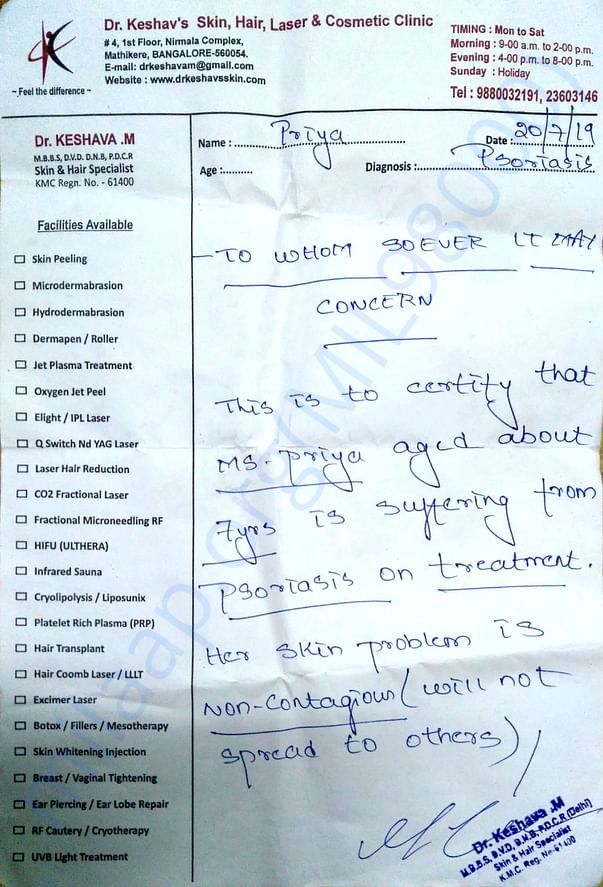 Dr. Keshav's Skin, Hair, Laser & Cosmetic Clinic
# 4, 1st Floor, Nirmala Complex,
Mathikere, BANGALORE-560054.
E-mail: drkeshavam@gmail.com
Website : www.drkeshavsskin.com
~Feel the difference~
TIMING : Mon to Sat
Morning : 9-00 a.m. to 2-00 p.m.
Evening : 4-00 p.m. to 8-00 p.m.
Sunday : Holiday
Tel : 9880032191, 23603146
Dr. KESHAVA .M
M.B.B.S, D.V.D. D.N.B, P.D.C.R
Skin & Hair Specialist
KMC Regn. No. - 61400
Name : Priya
Date : 20/7/19
Age :.........
Diagnosis : Psoriasis
Facilities Available
Skin Peeling
Microdermabrasion
Hydrodermabrasion
Dermapen / Roller
Jet Plasma Treatment
Oxygen Jet Peel
Elight / IPL Laser
Q Switch Nd YAG Laser
Laser Hair Reduction
CO2 Fractional Laser
Fractional Microneedling RF
HIFU (ULTHERA)
Infrared Sauna
Cryolipolysis / Liposunix
Platelet Rich Plasma (PRP)
Hair Transplant
Hair Coomb Laser / LLLT
Excimer Laser
Botox / Fillers / Mesotherapy
Skin Whitening Injection
Breast / Vaginal Tightening
Ear Piercing / Ear Lobe Repair
RF Cautery / Cryotherapy
UVB Light Treatment
TO WHOM SO EVER IT MAY
CONCERN
This is to certify that
MS. Priya aged about
7yrs is suffering from
Psoriasis on treatment.
Her skin problem is
non-contagious (will not
spread to others)
Dr. Keshava .M
M.B.B.S, D.V.D, D.N.B, P.D.C.R (Delhi)
Skin & Hair Specialist
K.M.C. Reg. No-61400